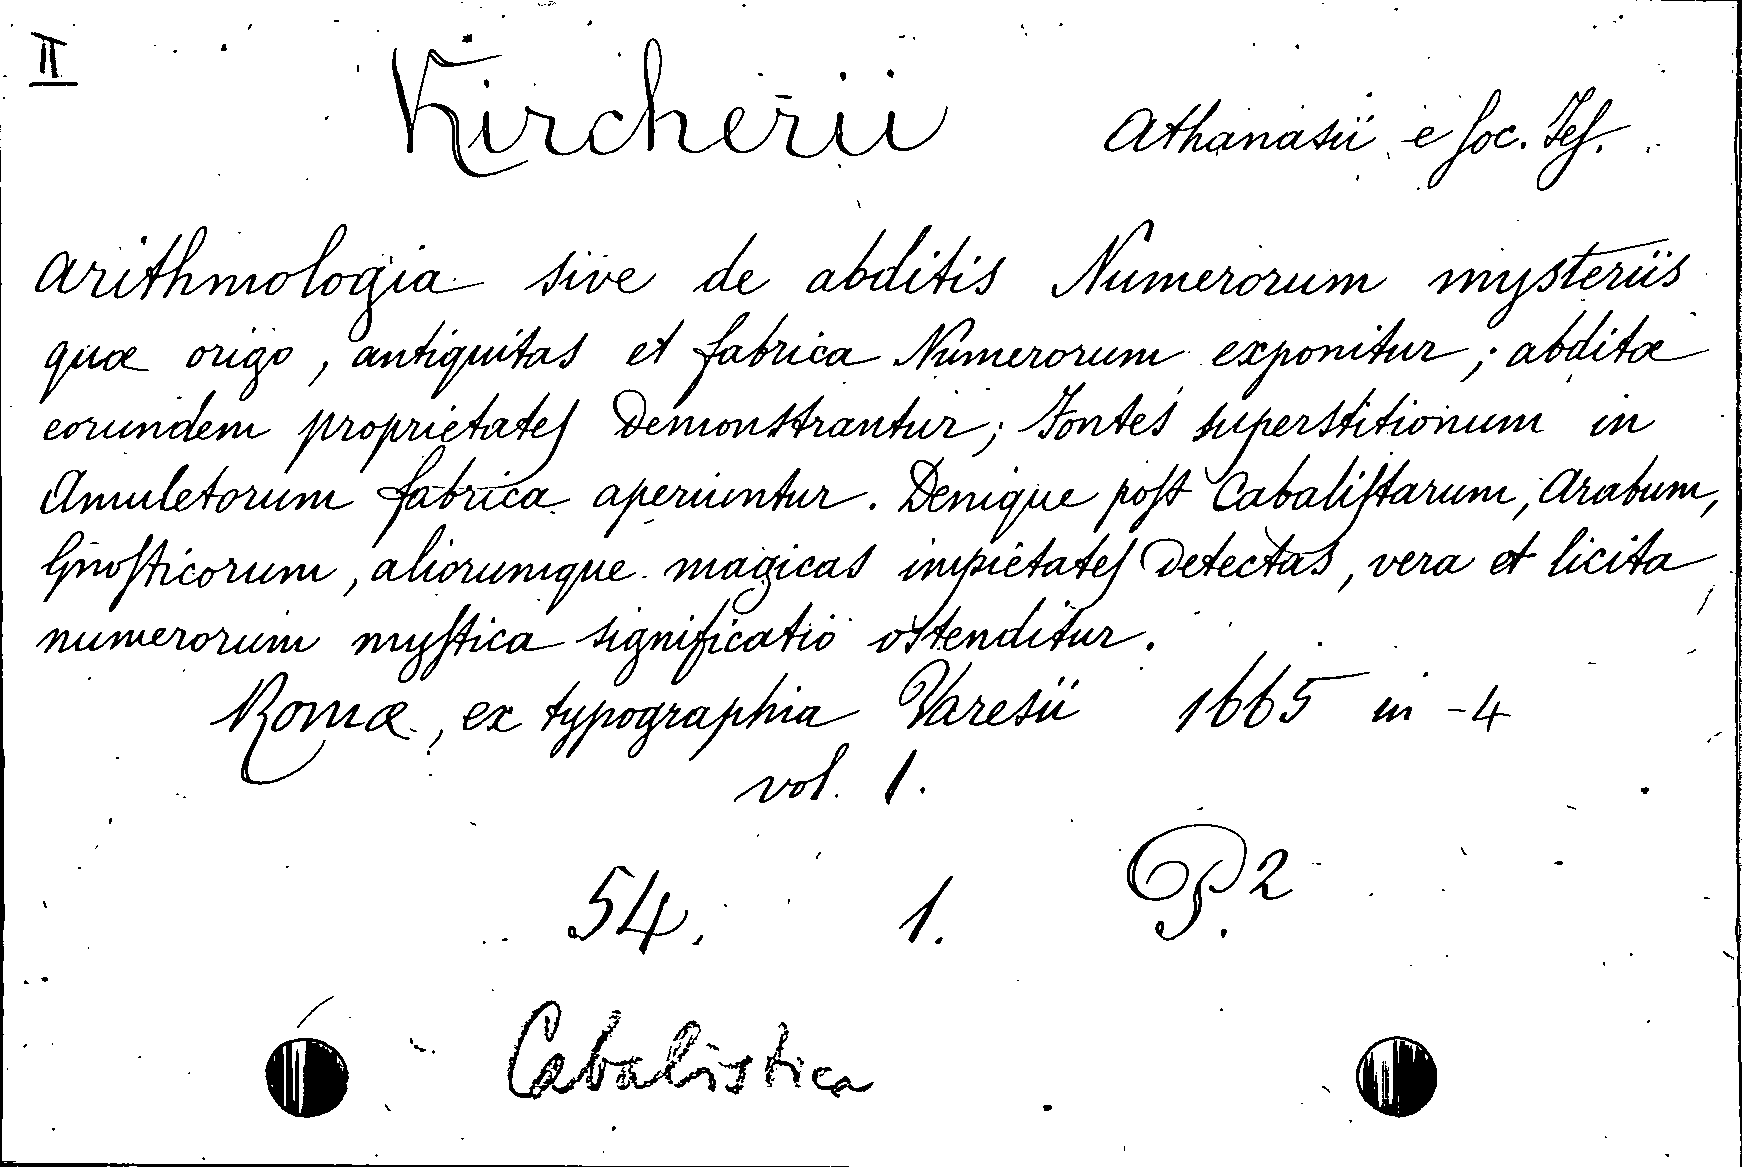 II
Kircherii Athanasii e Soc. Jeſ.
Arithmologia sive de abditis Numerorum mysteriis
quæ origo, antiquitas et fabrica Numerorum exponitur; abditæ
eorundem proprietateſ Demonstrantur; Fontes superstitionum in
Amuletorum fabrica aperiuntur. Denique poſt Cabaliſtarum, Arabum,
Gnoſticorum, aliorumque magicas impietateſ Detectas, vera et licita
numerorum myſtica significatio ostenditur.
Romæ, ex typographia Varesii 1665 in-4
vol. 1.
54. 1. P.2
Cabalistica